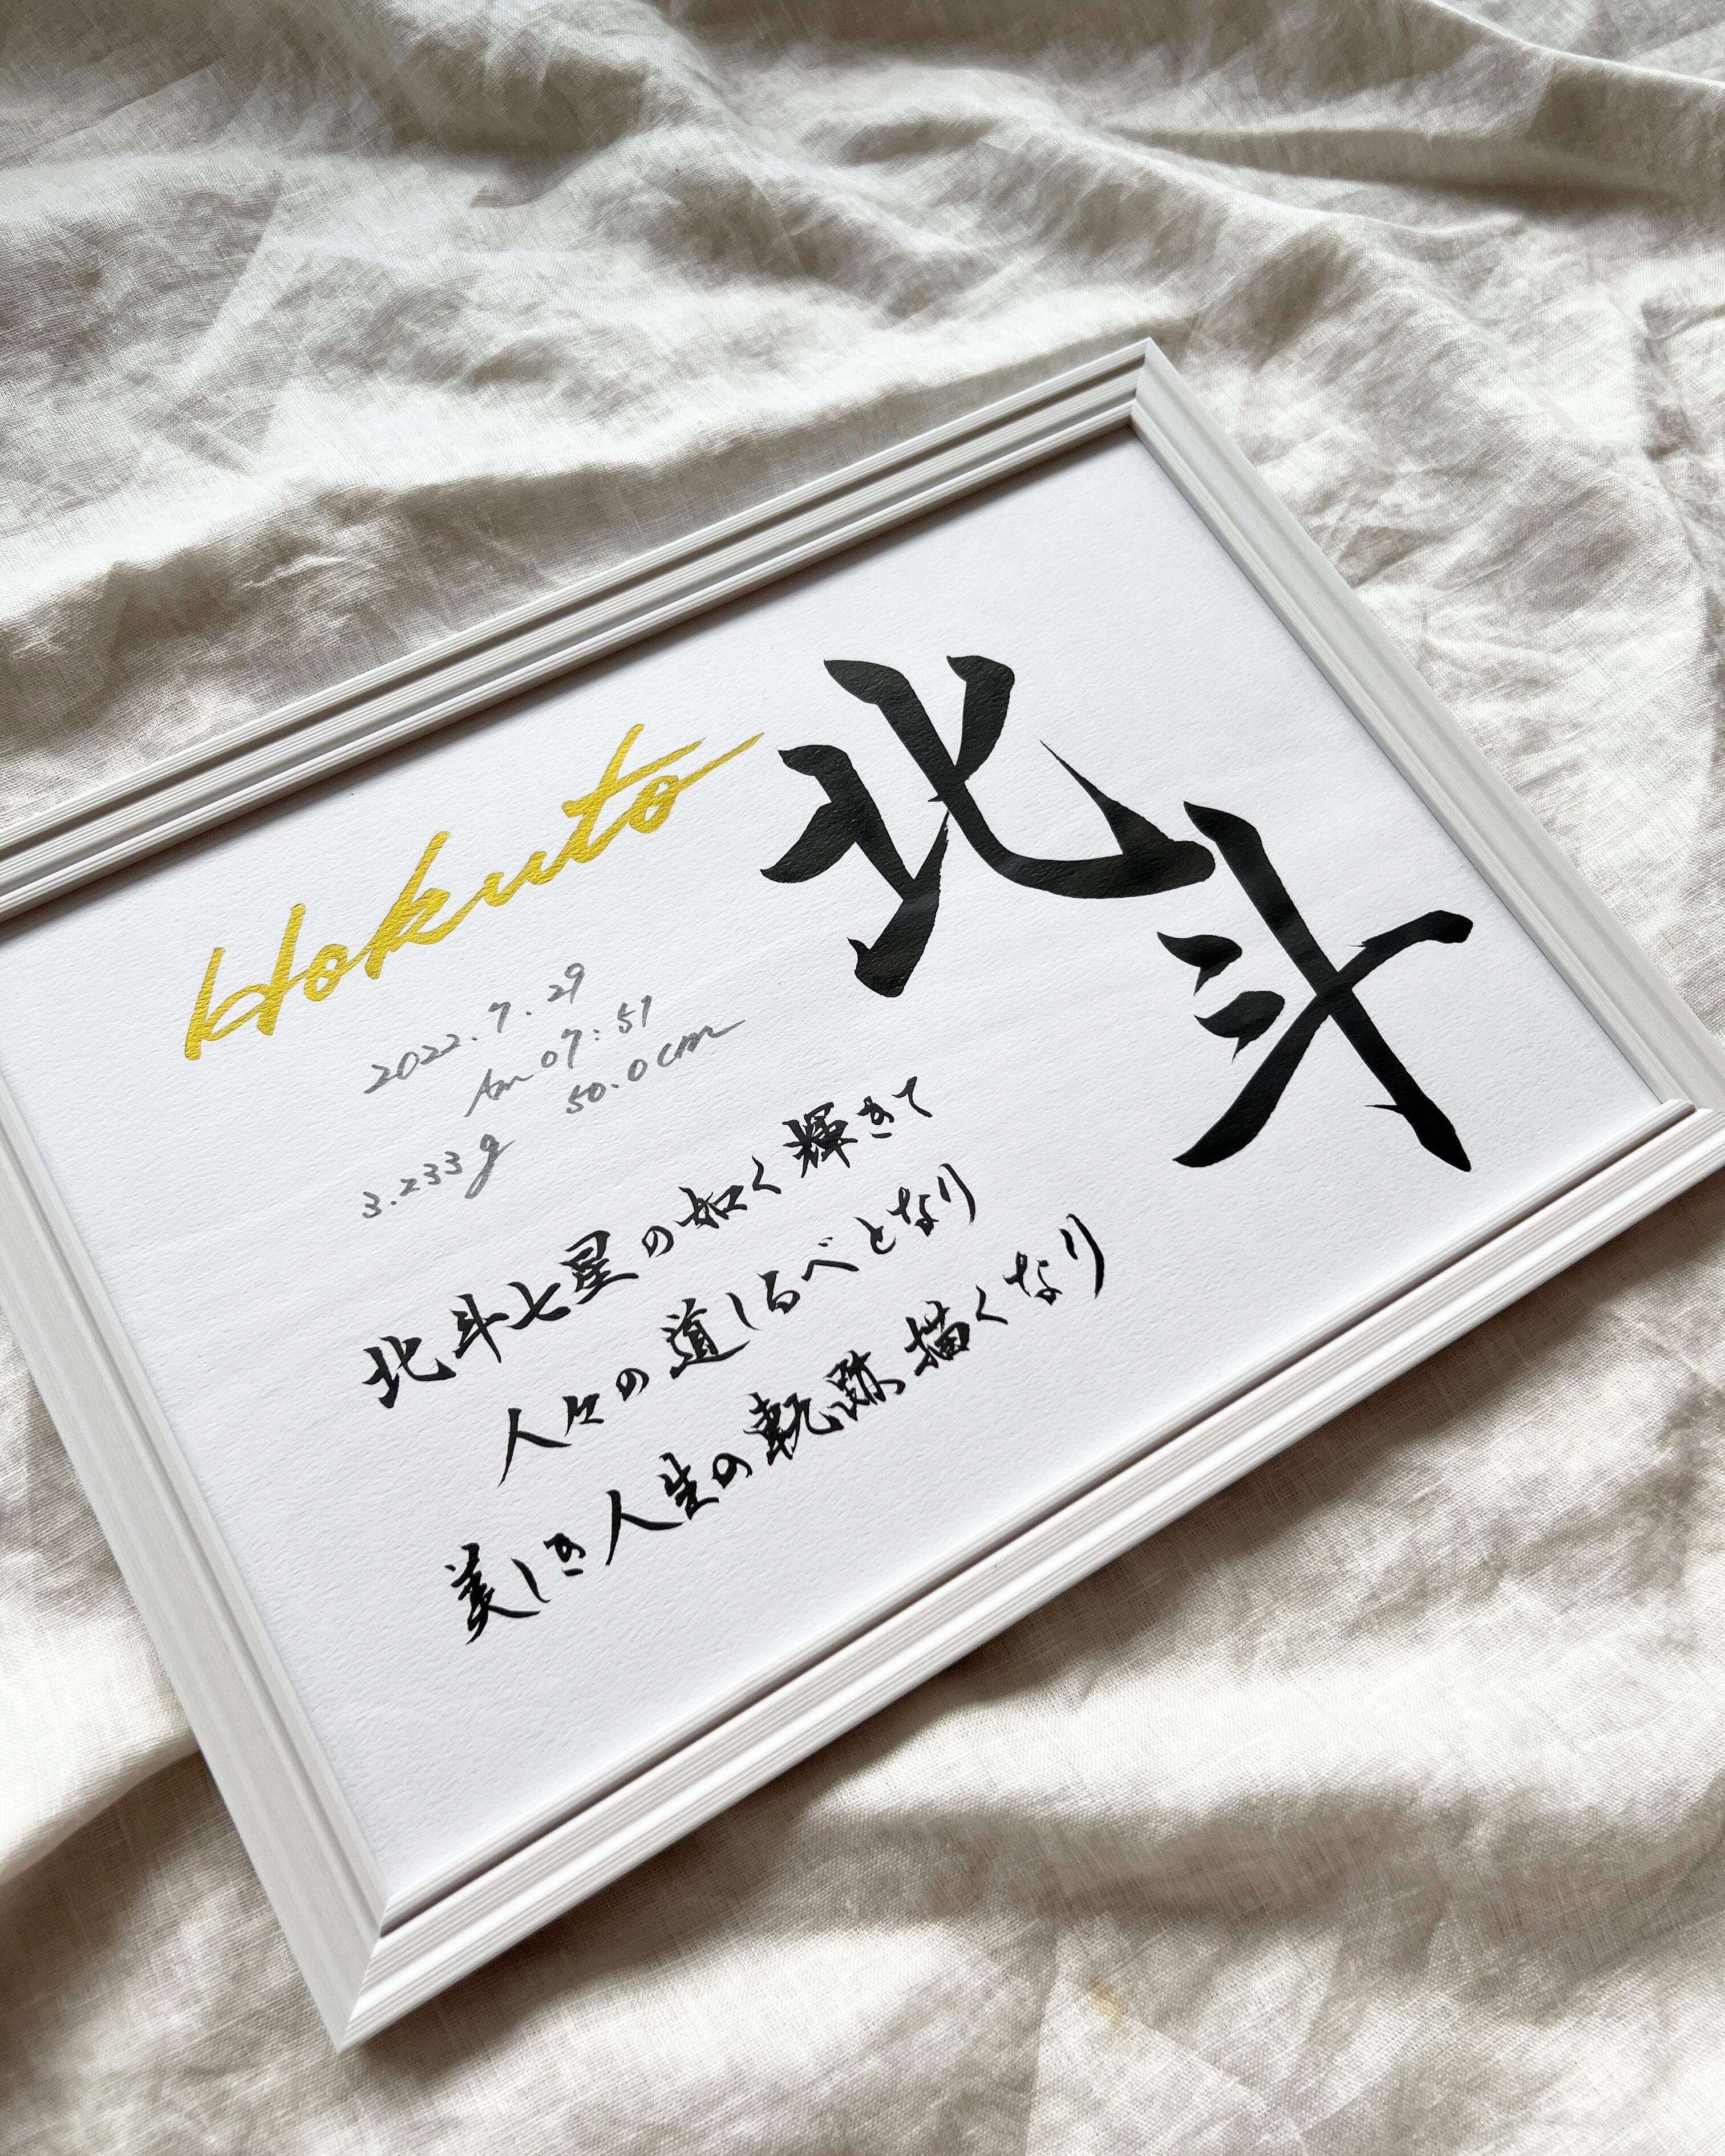 北斗
Hokuto
2022.7.29
Am 07:51
50.0cm
3.233g
北斗七星の如く輝きて
人々の道しるべとなり
美しき人生の軌跡描くなり